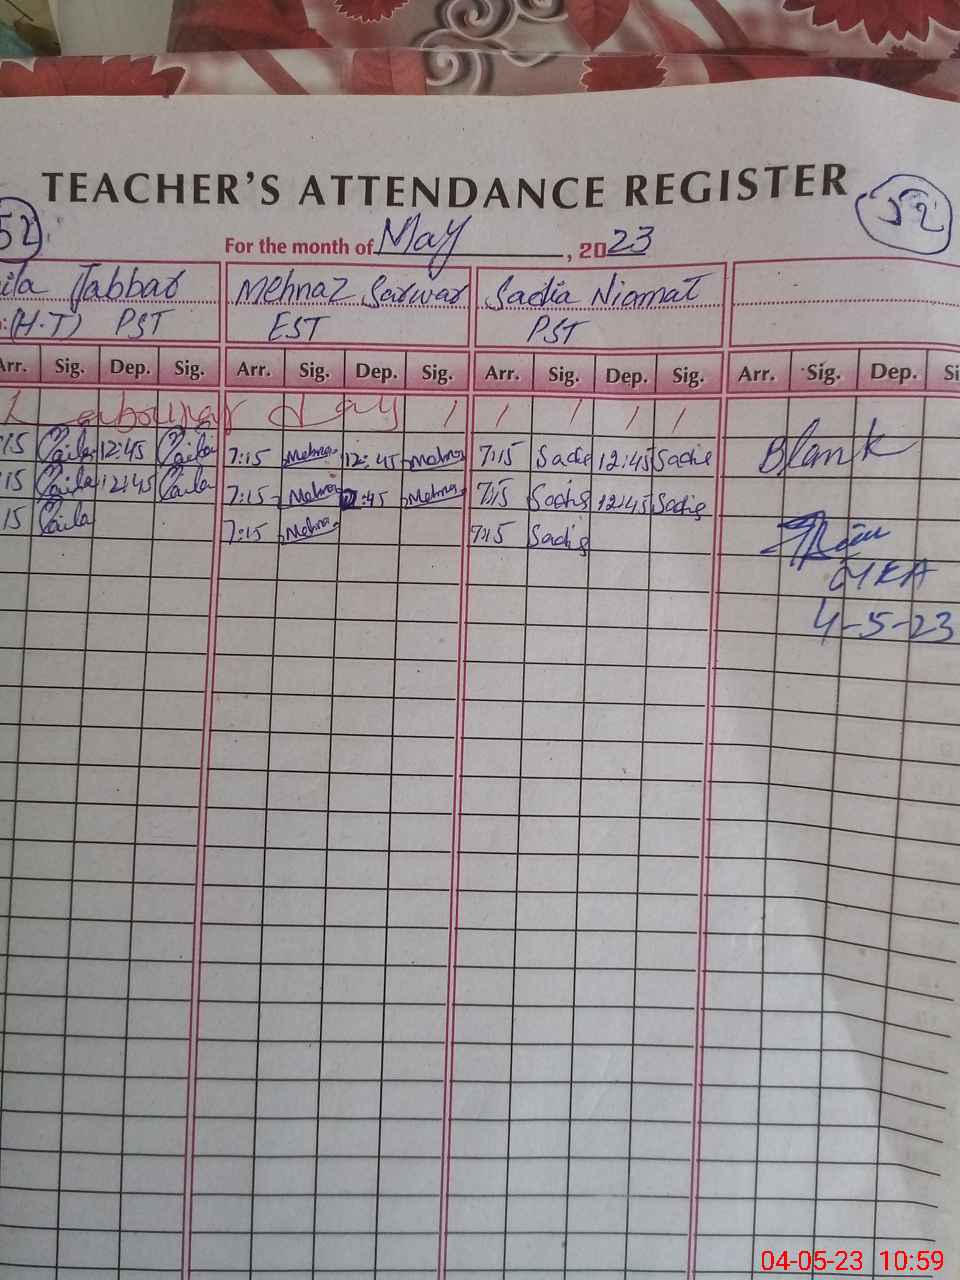 TEACHER'S ATTENDANCE REGISTER
52 52
For the month of May, 2023
ila Jabbar Mehnaz Sarwar Sadia Niamat
:(H.T) PST EST PST
Arr. Sig. Dep. Sig. Arr. Sig. Dep. Sig. Arr. Sig. Dep. Sig. Arr. Sig. Dep. Si
Labour Day
:15 Laila 12:45 Laila 7:15 Mehnaz 12:45 Mehnaz 7:15 Sadia 12:45 Sadia Blank
:15 Laila 12:45 Laila 7:15 Mehnaz :45 Mehnaz 7:15 Sadia 12:45 Sadia
15 Laila 7:15 Mehnaz 7:15 Sadia
MEA
4-5-23
04-05-23 10:59